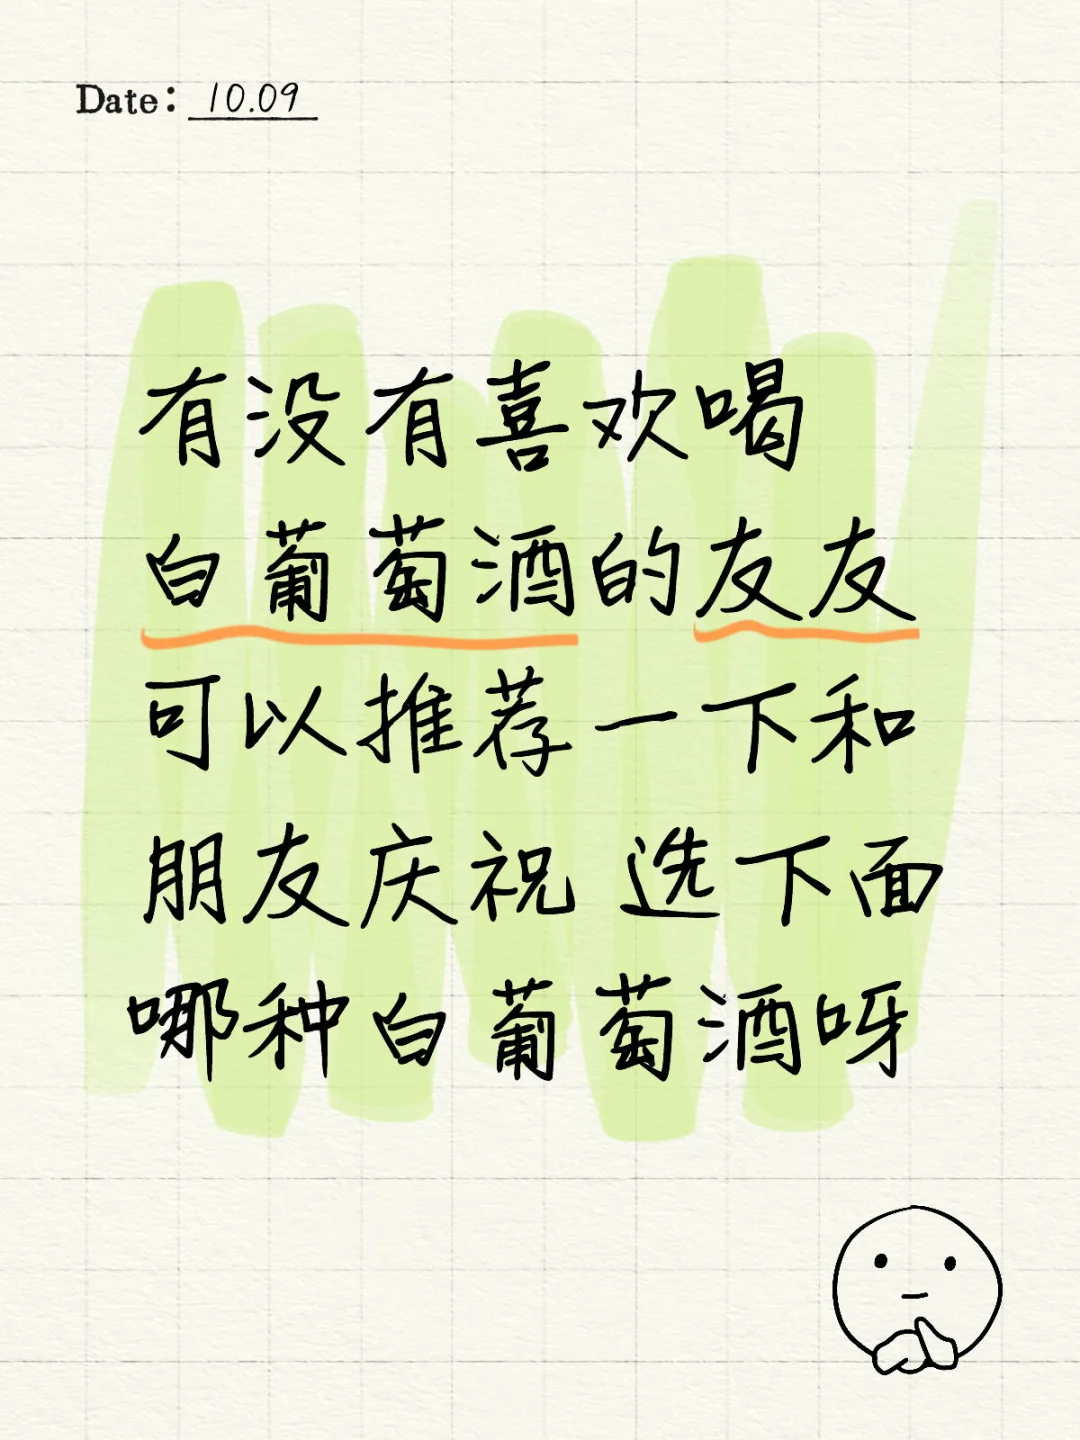 Date: 10.09
有没有喜欢喝
白葡萄酒的友友
可以推荐一下和
朋友庆祝 选下面
哪种白葡萄酒呀